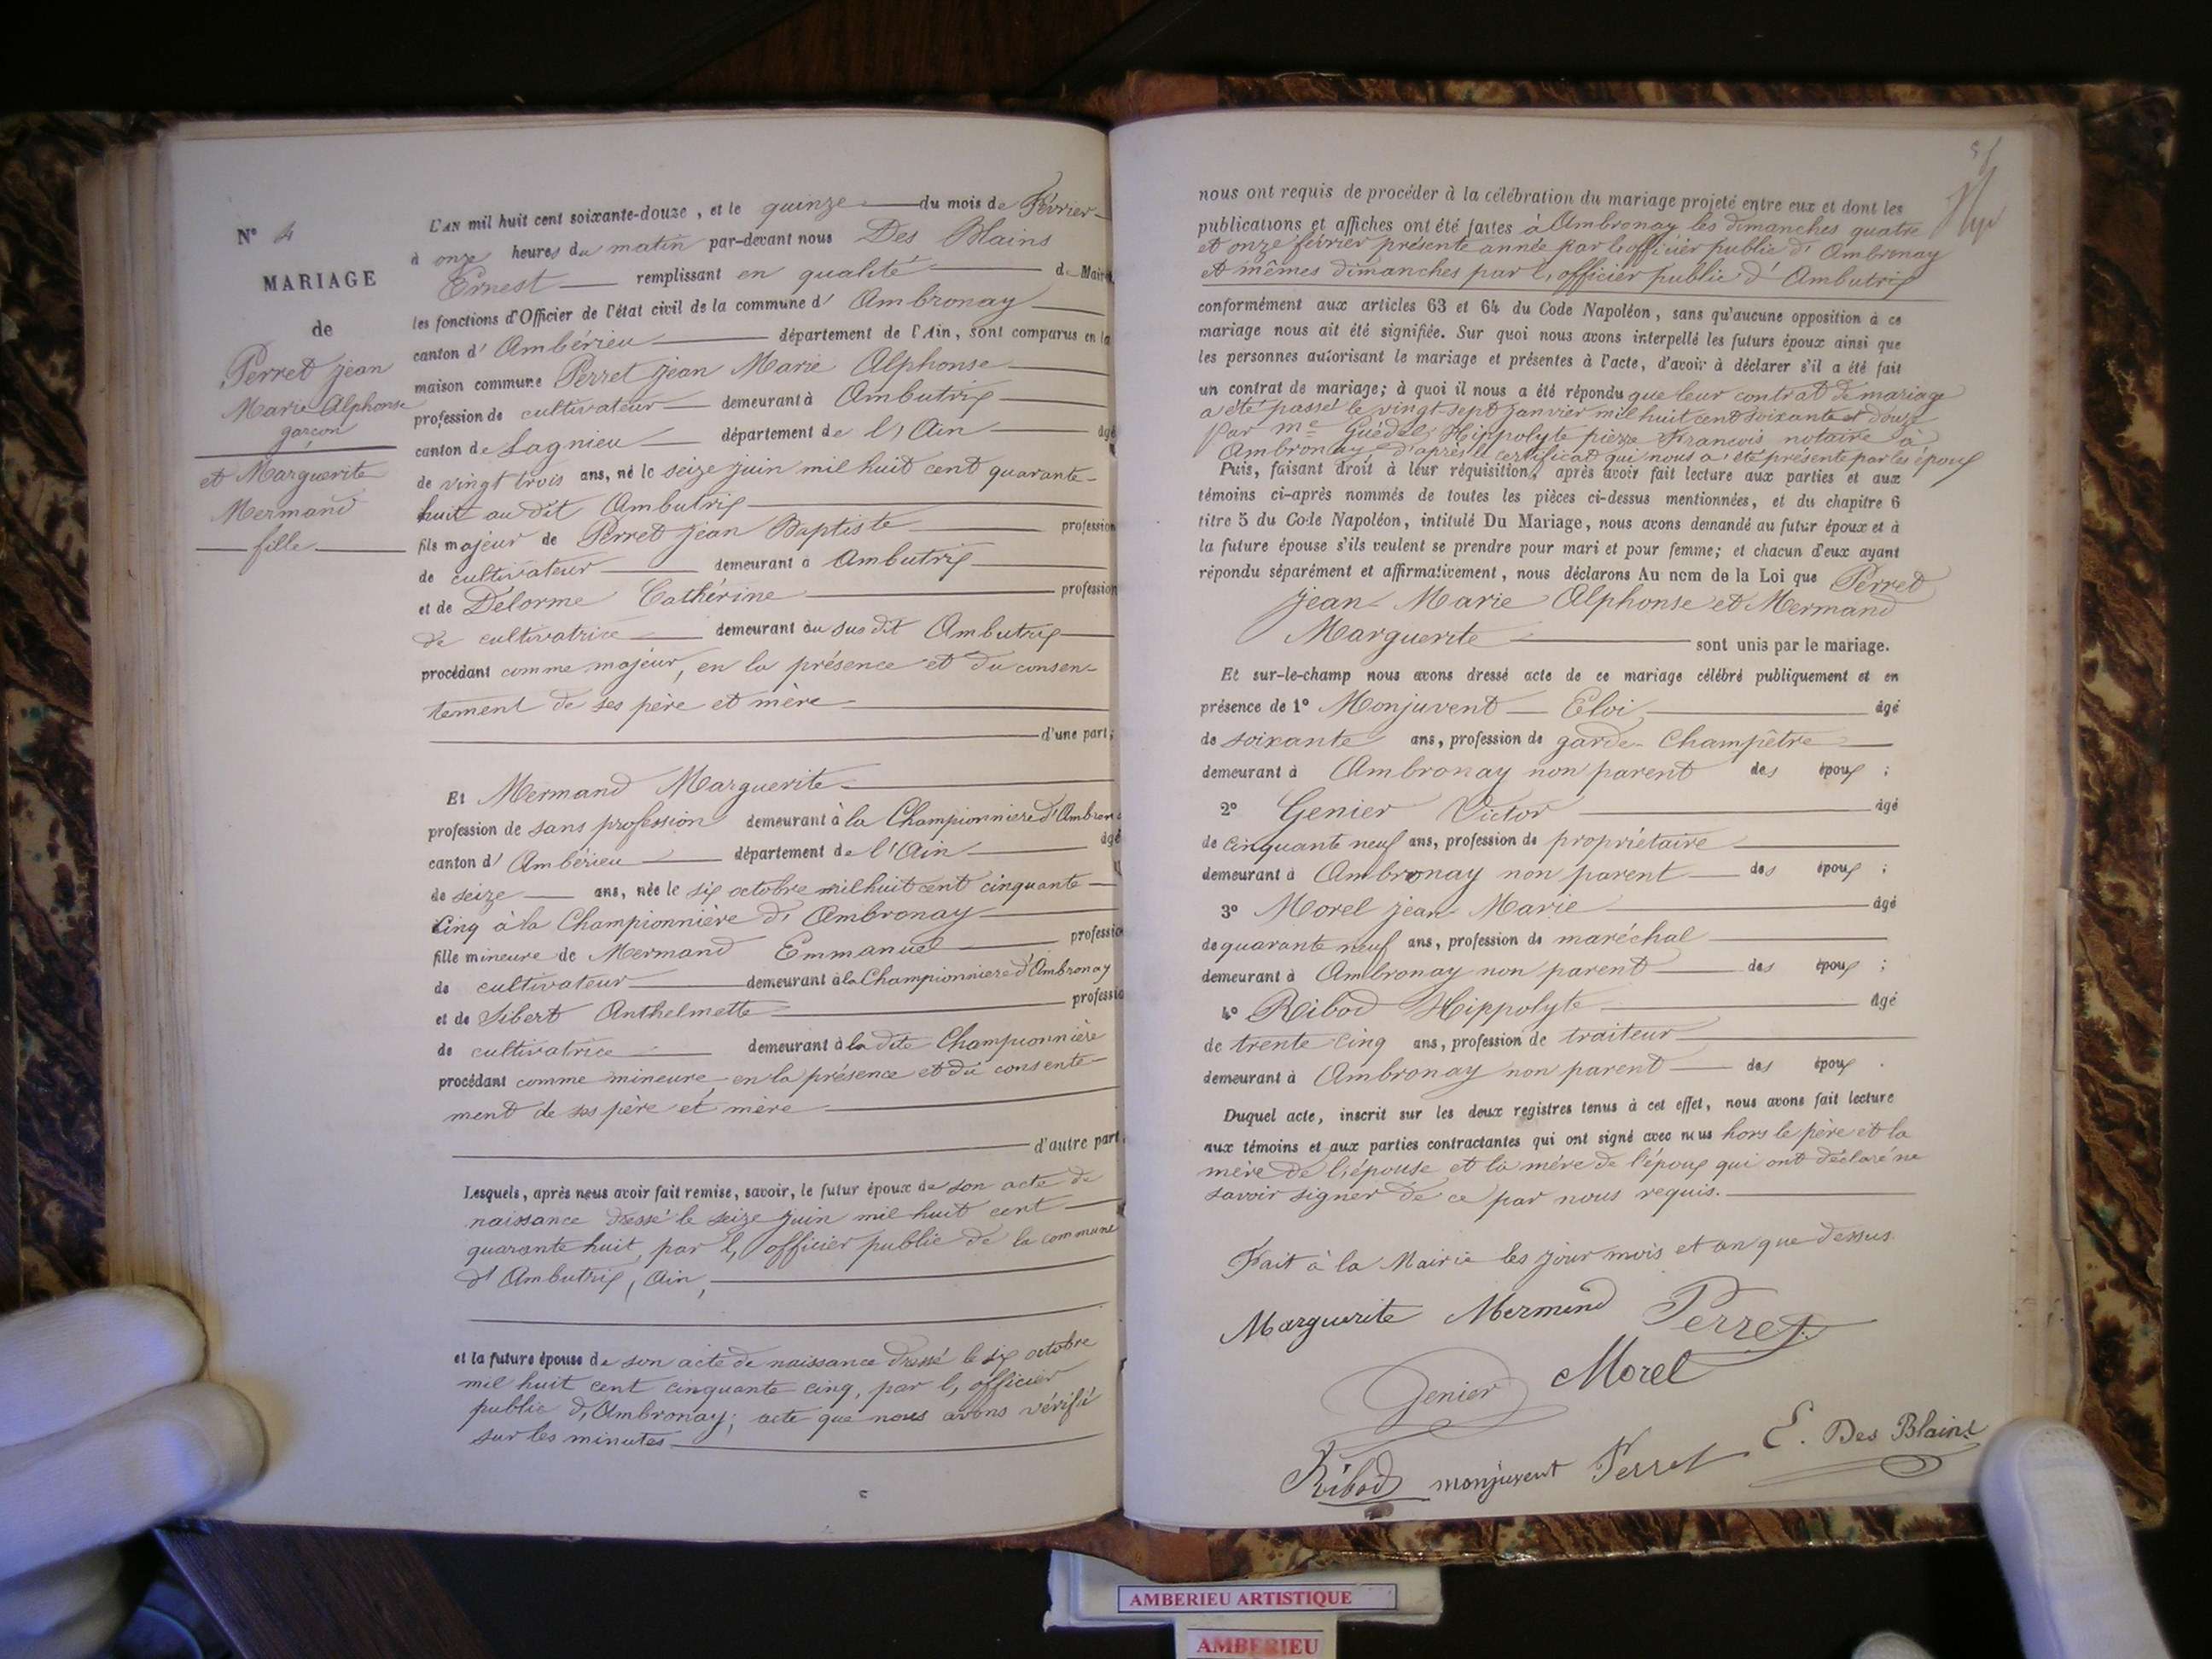 N° 4
MARIAGE
de
Perret jean
Marie Alphonse
garçon
et Marguerite
Mermand
fille
L'AN mil huit cent soixante-douze, et le quinze du mois de Février
à onze heures du matin par-devant nous Des Blains
Ernest remplissant en qualité de Maire
les fonctions d'Officier de l'état civil de la commune d' Ambronay
canton d' Ambérieu département de l'Ain, sont comparus en la
maison commune Perret jean Marie Alphonse
profession de cultivateur demeurant à Ambutrix
canton de Lagnieu département de l'Ain âgé
de vingt trois ans, né le seize juin mil huit cent quarante-
huit au dit Ambutrix
fils majeur de Perret jean Baptiste profession
de cultivateur demeurant à Ambutrix
et de Delorme Cathérine profession
de cultivatrice demeurant au sus dit Ambutrix
procédant comme majeur, en la présence et du consen-
tement de ses père et mère
d'une part;
Et Mermand Marguerite
profession de sans profession demeurant à la Championnière d'Ambron
canton d' Ambérieu département de l'Ain âgé
de seize ans, née le six octobre mil huit cent cinquante
Cinq à la Championnière d' Ambronay
fille mineure de Mermand Emmanuel professio
de cultivateur demeurant à la Championniere d'Ambronay
et de Sibert Anthelmette professio
de cultivatrice demeurant à la dite Championnière
procédant comme mineure en la présence et du consente-
ment de ses père et mère
d'autre part.
Lesquels, après nous avoir fait remise, savoir, le futur époux de son acte de
naissance dressé le seize juin mil huit cent
quarante huit, par l, officier public de la commune
d' Ambutrix, Ain,
et la future épouse de son acte de naissance dressé le six octobre
mil huit cent cinquante cinq, par l, officier
public d, Ambronay; acte que nous avons vérifié
sur les minutes
nous ont requis de procéder à la célébration du mariage projeté entre eux et dont les
publications et affiches ont été faites à Ambronay les dimanches quatre
et onze février présente année par l'officier public d' Ambronay
et mêmes dimanches par l, officier public d' Ambutrix
conformément aux articles 63 et 64 du Code Napoléon, sans qu'aucune opposition à ce
mariage nous ait été signifiée. Sur quoi nous avons interpellé les futurs époux ainsi que
les personnes autorisant le mariage et présentes à l'acte, d'avoir à déclarer s'il a été fait
un contrat de mariage; à quoi il nous a été répondu que leur contrat de mariage
a été passé le vingt sept janvier mil huit cent soixante et douze
Par me Guédel, Hippolyte pierre Francois notaire à
Ambronay, d'après le certificat qui nous a été présenté par les époux
Puis, faisant droit à leur réquisition, après avoir fait lecture aux parties et aux
témoins ci-après nommés de toutes les pièces ci-dessus mentionnées, et du chapitre 6
titre 5 du Code Napoléon, intitulé Du Mariage, nous avons demandé au futur époux et à
la future épouse s'ils veulent se prendre pour mari et pour femme; et chacun d'eux ayant
répondu séparément et affirmativement, nous déclarons Au nom de la Loi que Perret
jean Marie Alphonse et Mermand
Marguerite sont unis par le mariage.
Et sur-le-champ nous avons dressé acte de ce mariage célébré publiquement et en
présence de 1° Monjuvent Eloi âgé
de soixante ans, profession de garde-Champêtre
demeurant à Ambronay non parent des époux ;
2° Genier Victor âgé
de cinquante neuf ans, profession de propriétaire
demeurant à Ambronay non parent des époux ;
3° Morel jean Marie âgé
de quarante neuf ans, profession de maréchal
demeurant à Ambronay non parent des époux ;
4° Ribod Hippolyte âgé
de trente cinq ans, profession de traiteur
demeurant à Ambronay non parent des époux .
Duquel acte, inscrit sur les deux registres tenus à cet effet, nous avons fait lecture
aux témoins et aux parties contractantes qui ont signé avec nous hors le père et la
mère de l'épouse et la mère de l'époux qui ont déclaré ne
savoir signer de ce par nous requis.
Fait à la Mairie les jour mois et an que dessus
Marguerite Mermand Perret
Genier Morel
Ribod monjuvent Perret E. Des Blains
AMBERIEU ARTISTIQUE
AMBERIEU